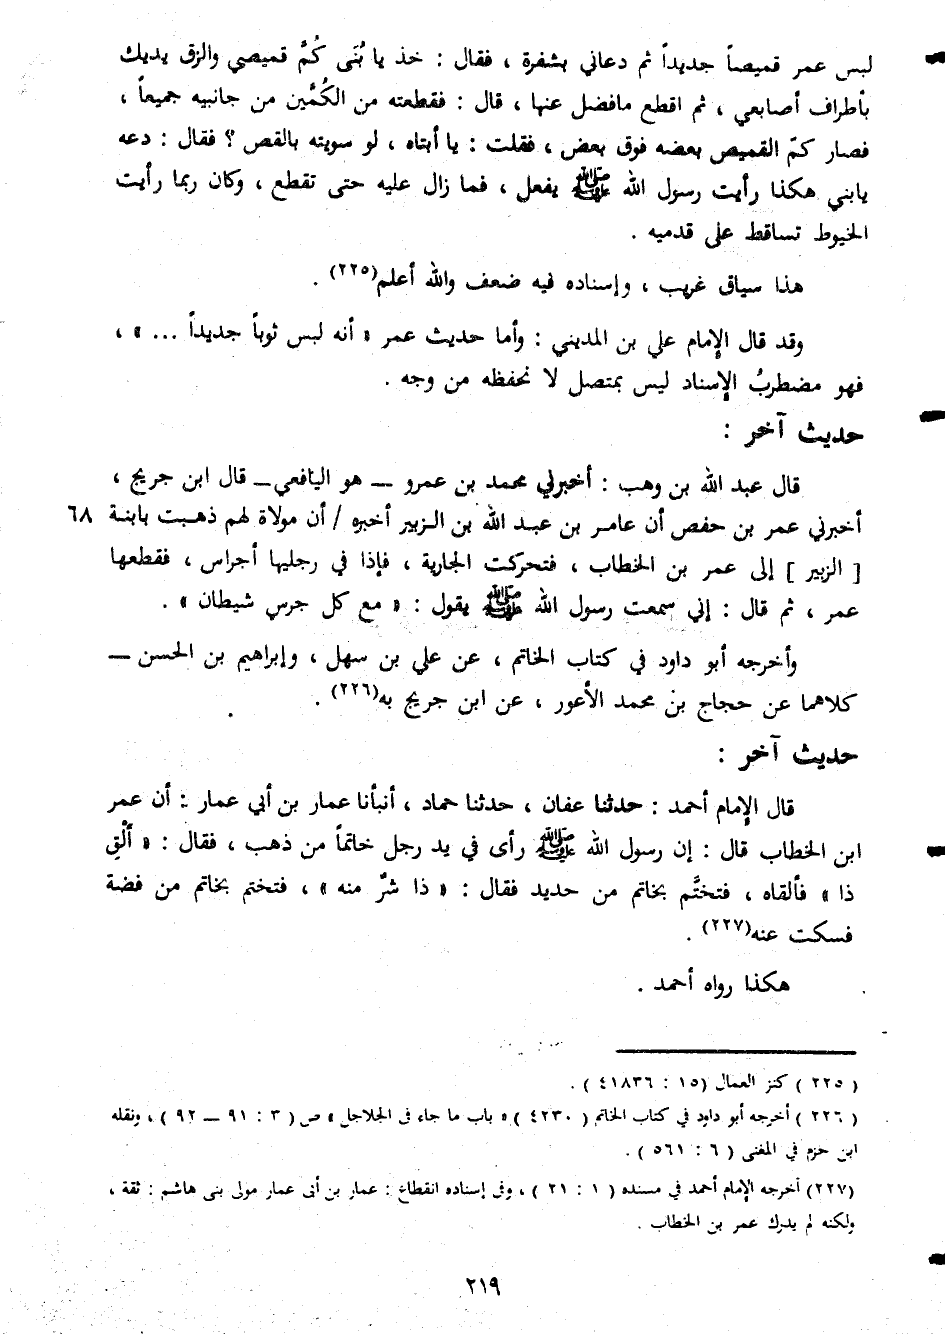 لبس عمر قميصاً جديداً ثم دعاني بشفرة ، فقال : خذ يا بُنَى كُمَّ قميصي والزق يديك
بأطراف أصابعي ، ثم اقطع مافضل عنها ، قال : فقطعته من الكُمَّين من جانبيه جميعاً ،
فصار كمّ القميص بعضه فوق بعض ، فقلت : يا أبتاه ، لو سويته بالقص ؟ فقال : دعه
يابني هكذا رأيت رسول الله ﷺ يفعل ، فما زال عليه حتى تقطع ، وكان ربما رأيت
الخيوط تساقط على قدميه .
هذا سياق غريب ، وإسناده فيه ضعف والله أعلم(٢٢٥) .
وقد قال الإمام علي بن المديني : وأما حديث عمر « أنه لبس ثوباً جديداً ... » ،
فهو مضطربُ الإسناد ليس بمتصل لا نحفظه من وجه .
حديث آخر :
قال عبد الله بن وهب : أخبرني محمد بن عمرو — هو اليافعي — قال ابن جريج ،
أخبرني عمر بن حفص أن عامر بن عبد الله بن الزبير أخبره / أن مولاة لهم ذهبت بابنة ٦٨
[ الزبير ] إلى عمر بن الخطاب ، فتحركت الجارية ، فإذا في رجليها أجراس ، فقطعها
عمر ، ثم قال : إني سمعت رسول الله ﷺ يقول : « مع كل جرس شيطان » .
وأخرجه أبو داود في كتاب الخاتم ، عن علي بن سهل ، وإبراهيم بن الحسن —
كلاهما عن حجاج بن محمد الأعور ، عن ابن جريج به(٢٢٦) .
حديث آخر :
قال الإمام أحمد : حدثنا عفان ، حدثنا حماد ، أنبأنا عمار بن أبي عمار : أن عمر
ابن الخطاب قال : إن رسول الله ﷺ رأى في يد رجل خاتماً من ذهب ، فقال : « ألْقِ
ذا » فألقاه ، فتختَّم بخاتم من حديد فقال : « ذا شرٌ منه » ، فتختم بخاتم من فضة
فسكت عنه(٢٢٧) .
هكذا رواه أحمد .
( ٢٢٥ ) كنز العمال (١٥ : ٤١٨٣٦ ) .
( ٢٢٦ ) أخرجه أبو داود في كتاب الخاتم ( ٤٢٣٠ ) « باب ما جاء فى الجلاجل » ص ( ٣ : ٩١ — ٩٢ ) ، ونقله
ابن حزم في المغنى ( ٦ : ٥٦١ ) .
(٢٢٧) أخرجه الإمام أحمد في مسنده ( ١ : ٢١ ) ، وفى إسناده انقطاع : عمار بن أبى عمار مولى بنى هاشم : ثقة ،
ولكنه لم يدرك عمر بن الخطاب .
٢١٩